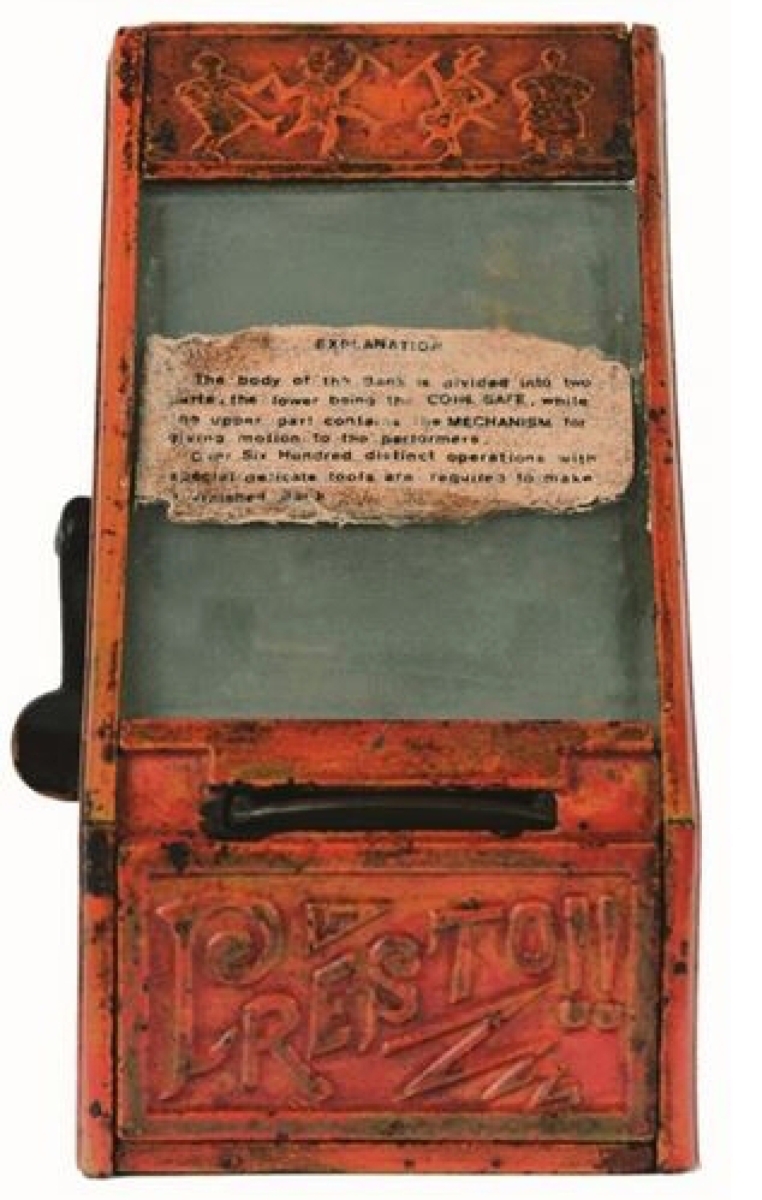 EXPLANATION
The body of the Bank is divided into two
the lower being the COIN SAFE, while
upper part contains the MECHANISM for
giving motion to the performers.
Over Six Hundred distinct operations with
special delicate tools are required to make
finished Bank
PRESTO!!